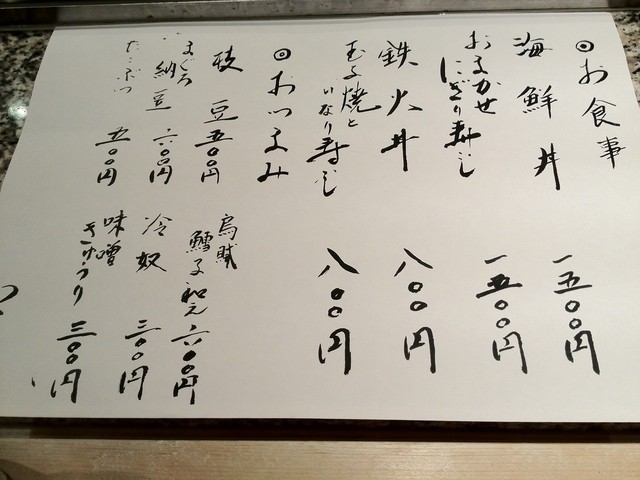 ◎お食事
海鮮丼 一五〇〇円
おまかせ
にぎり寿し 一五〇〇円
鉄火丼 八〇〇円
玉子焼と
いなり寿し 八〇〇円
◎おつまみ
枝豆 五〇〇円
まぐろ
納豆 六〇〇円
たこぶつ 五〇〇円
烏賊
鱈子和え 六〇〇円
冷奴 三〇〇円
味噌
きゅうり 三〇〇円